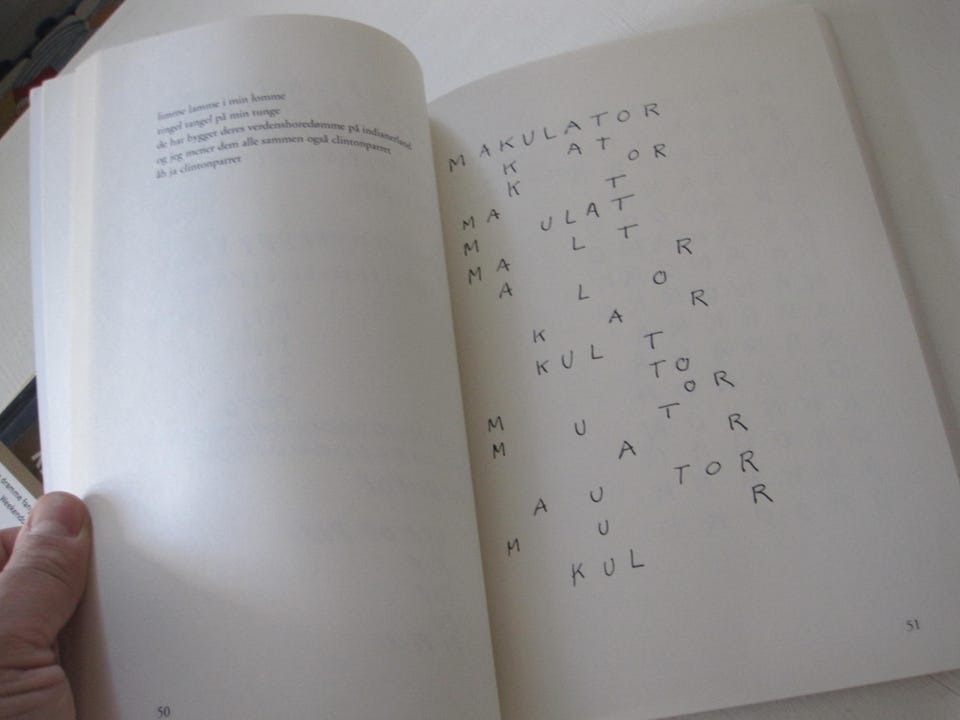 limme lamme i min lomme
tingel tangel på min tunge
de har bygget deres verdenshoredømme på indianerland
og jeg mener dem alle sammen også clintonparret
åh ja clintonparret
50
MAKULATOR
K A T
K O R
M A T
M ULAT
M A L T
A R
L O
K A R
KUL T
T O
M O R
M U T
A R
A U T O R
M U R
KUL
51